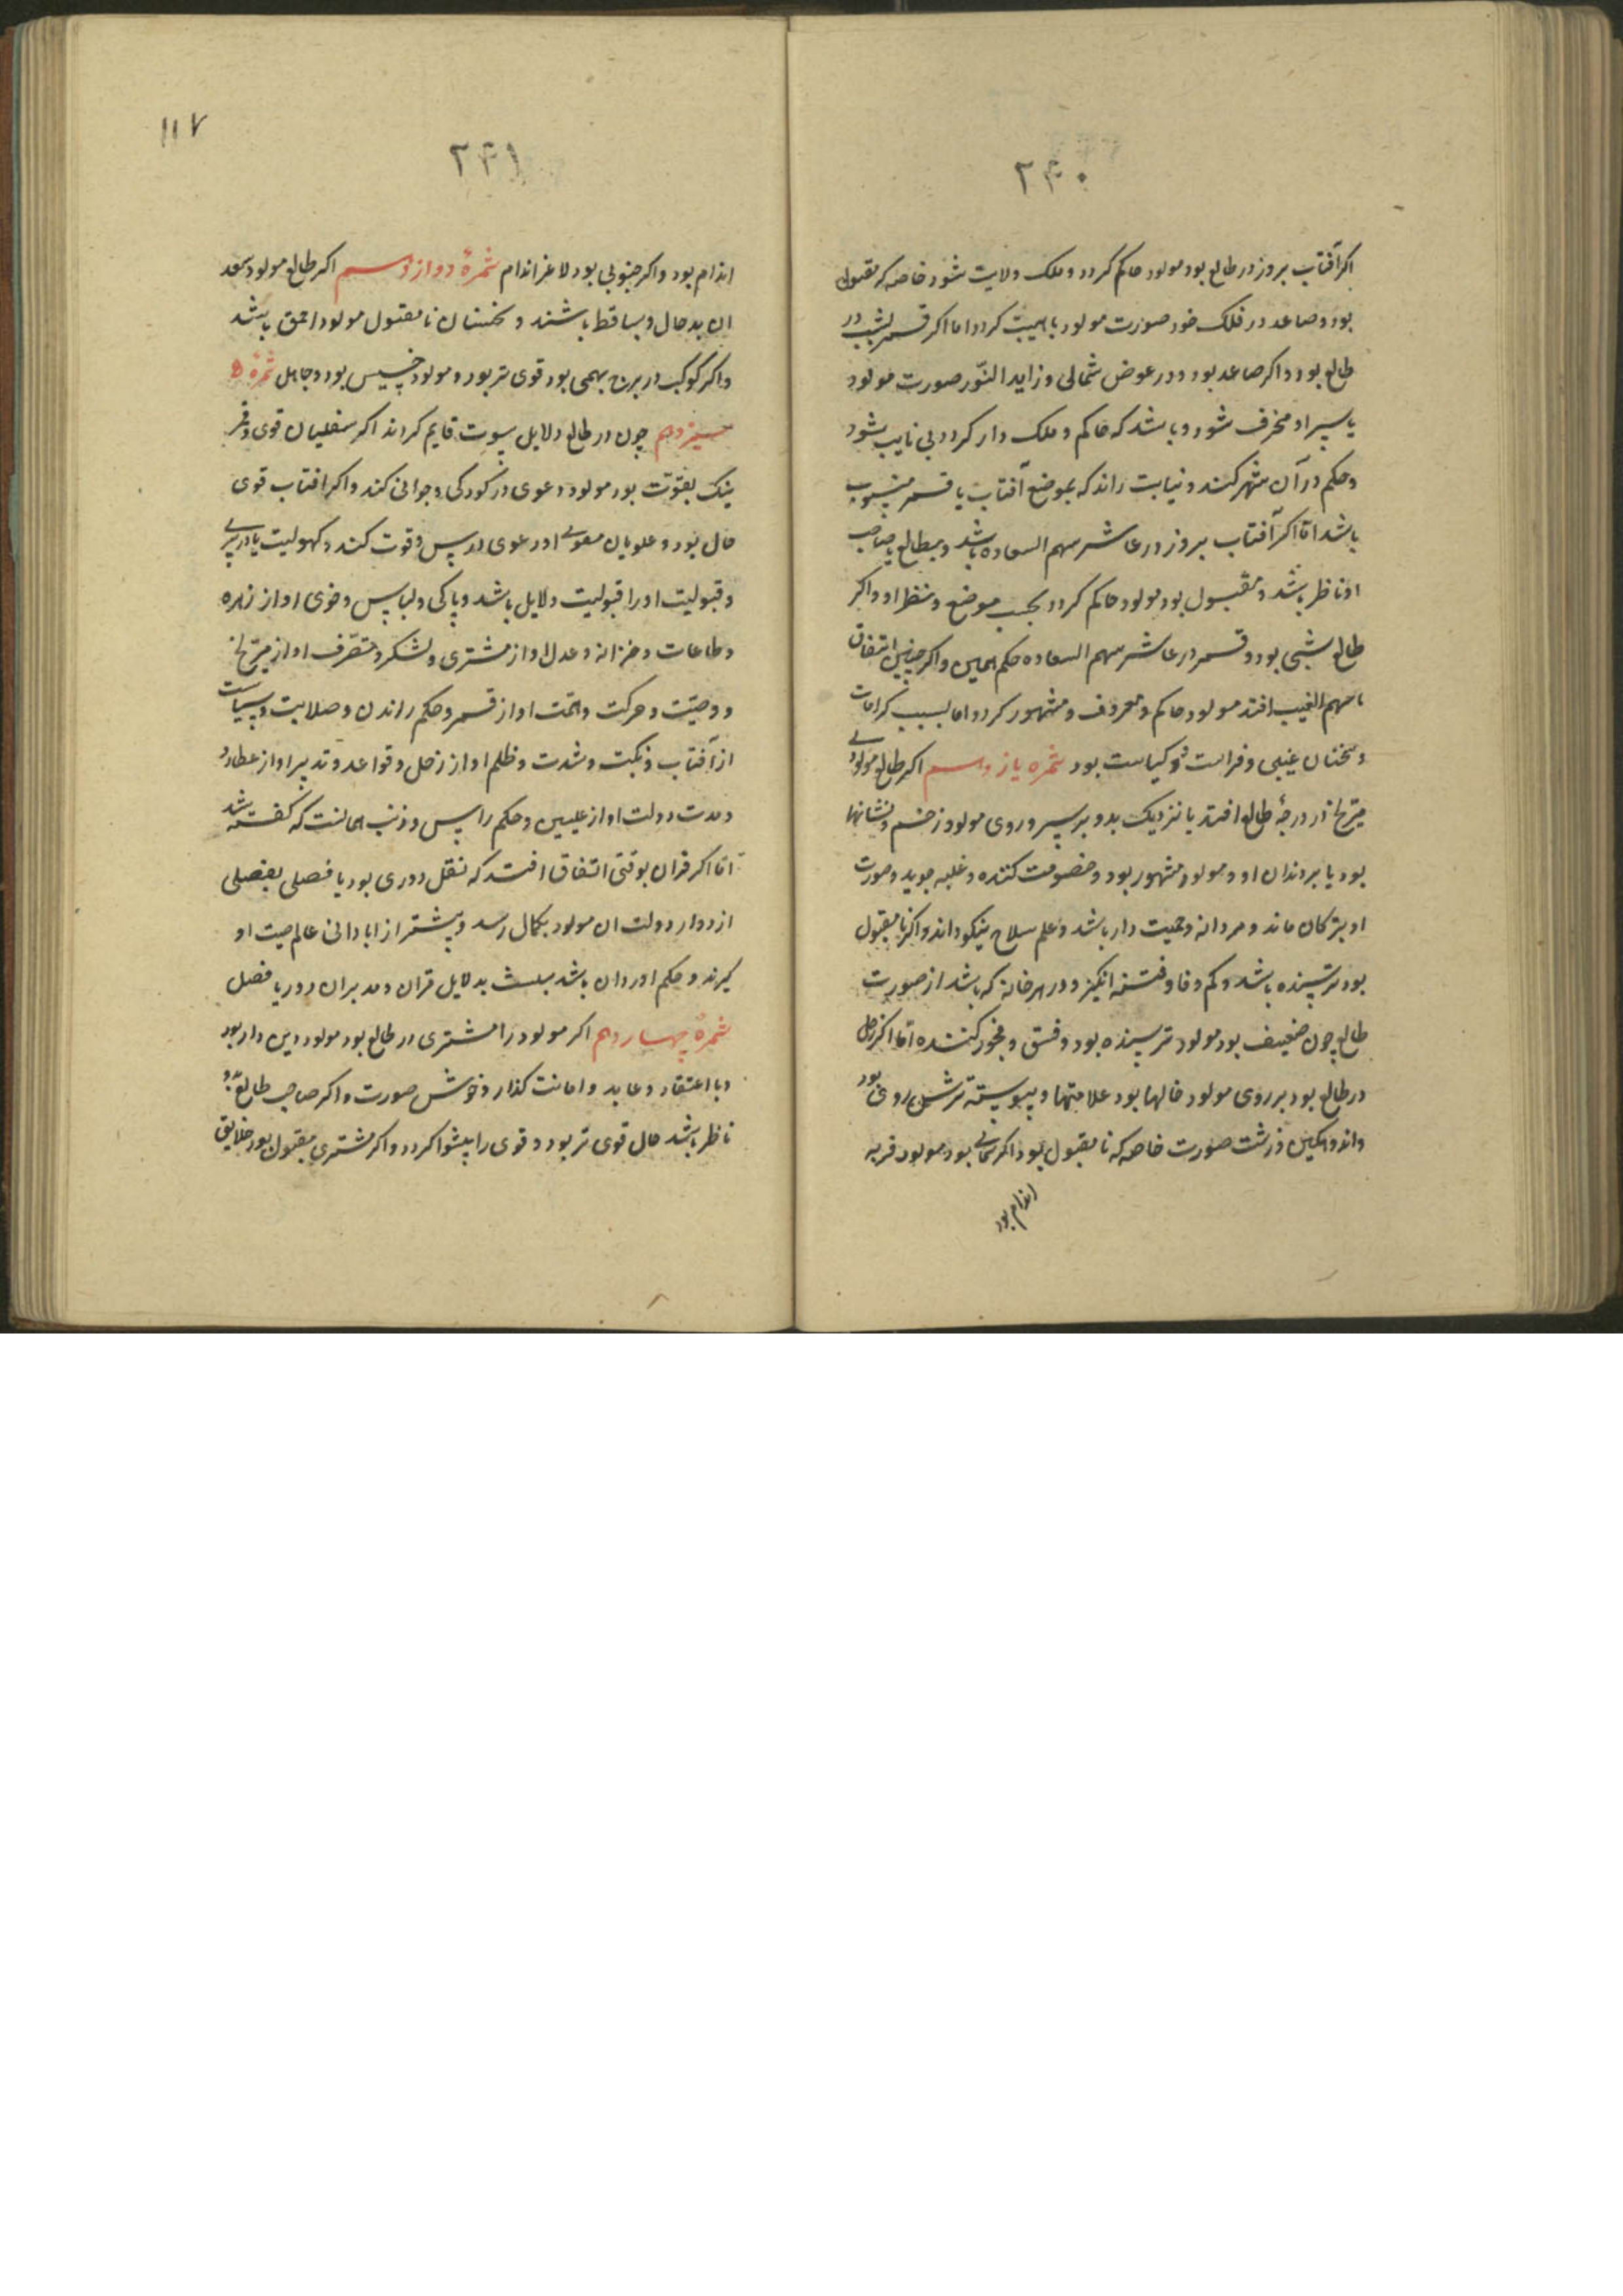 ۲۴۰
اکر آفتاب بروز در طالع بود مولود حاکم کردد و ملک ولایت شود خاصه که مقبول
بود و صاعد در فلک خود صورت مولود با هیبت کردد اما اکر قمر بشب در
طالع بود و اکر صاعد بود و در عرض شمالی و زاید النّور صورت مولود
یا سپر او منحرف شود و باشد که حاکم و ملک دار کردد بی نایب بشود
و حکم در آن شهر کند و نیابت راند که بموضع آفتاب یا قمر منسوب
باشد امّا اکر آفتاب بروز در عاشر سهم السعاده باشد و بطالع یا صاحب
او ناظر باشد و مقبول بود مولود حاکم کردد بحسب موضع و نظر او و اکر
طالع شبی بود و قمر در عاشر سهم السعاده حکم همین و اکر چنین اتفاق
با سهم الغیب افتد مولود حاکم و معروف و مشهور کردد اما بسبب کرامات
و سخنان غیبی و فراست و کیاست بود ثمره یازدهم اکر طالع مولودی
مرّیخ در درجهٔ طالع افتد یا نزدیک بدو بر سر و روی مولود زخم و نشانها
بود یا بر دندان او و مولود مشهور بود و خصومت کننده و غلبه جوید و صورت
او بترکان ماند و مردانه و حمیت دار باشد و علم سلاح نیکو داند و اکر نا مقبول
بود ترسنده باشد و کم وفا و فتنه انکیز و در هر خانه که باشد از صورت
طالع چون ضعیف بود مولود ترسنده بود و فسق و فجور کننده امّا اکر زحل
در طالع بود بر روی مولود خالها بود علامتها و پیوسته ترش روی بود
و اندوهکین و زشت صورت خاصه که نا مقبول بود اکر شمالی بود مولود فربه
اندام بود
۱۱۷
۲۴۱
اندام بود و اکر جنوبی بود لاغر اندام ثمرهٔ دوازدهم اکر طالع مولود سعد
ان بد حال و ساقط باشند و نحسان نا مقبول مولود احمق باشد
و اکر کوکب در برج بهیمی بود قوی تر بود و مولود خسیس بود و جاهل ثمرهٔ
سیزدهم چون در طالع دلایل بیوت قایم کراند اکر سفلیان قوی و قمر
نیک بقوّت بود مولود دعوی در کودکی و جوانی کند و اکر افتاب قوی
حال بود و علویان دعوی در پس وقوت کند و کهولیت یا در پیری
و قبولیت او را قبولیت دلایل باشد و پاکی و لباس و خوی او از زهره
و طاعات و خزانه و عدل او از مشتری و لشکر و تصرّف او از مرّیخ
و وصیّت و حرکت و همت او از قمر و حکم راندن و صلابت و سیاست
از آفتاب و نکبت و شدت و ظلم او از زحل و قواعد و تدبیر او از عطارد
و مدت دولت او از علیین و حکم راس و ذنب همانست که کفته شد
امّا اکر قران بوقتی اتفاق افتد که نقل دوری بود یا فصلی بفصلی
از دوار دولت ان مولود بکمال رسد و بیشتر از ابادانی عالم صیت او
کیرند و حکم او روان باشد بدلایل قران و مدبران دور یا فصل
ثمرهٔ چهاردهم اکر مولود را مشتری در طالع بود مولود دین دار بود
و با اعتقاد و عابد و امانت کذار و خوش صورت و اکر صاحب طالع بدو
ناظر باشد حال قوی تر بود و قومی را پیشوا کردد و اکر مشتری مقبول بود خلایق